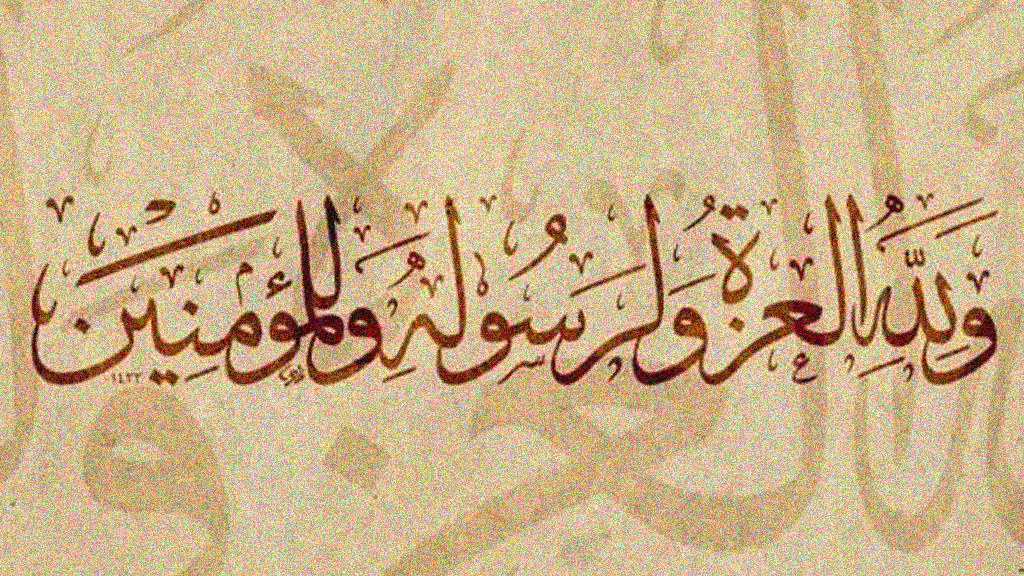 وَلِلَّهِ الْعِزَّةُ وَلِرَسُولِهِ وَلِلْمُؤْمِنِينَ
١٤٢٣